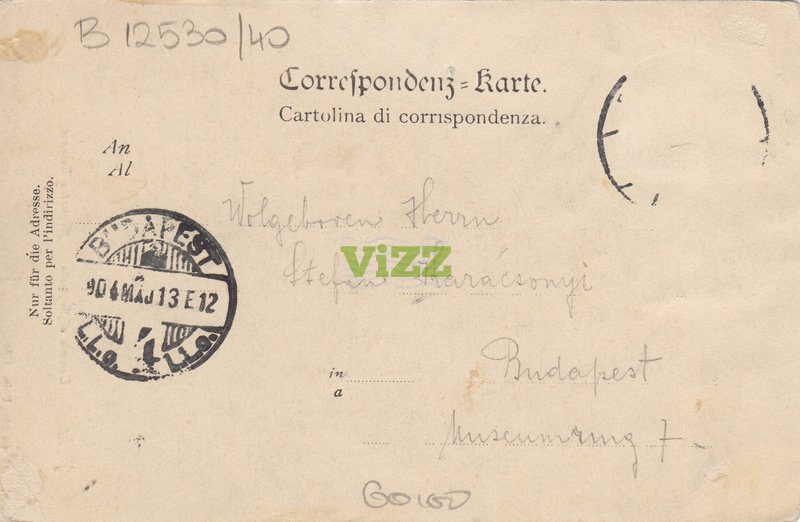 B 12530/40
Correspondenz-Karte.
Cartolina di corrispondenza.
An
Al
Nur für die Adresse.
Soltanto per l'indirizzo.
Wolgeboren Herrn
Stefan Karácsonyi
ViZZ
BUDAPEST
904 MÁJ 13 E 12
in
a
Budapest
Museumring 7.